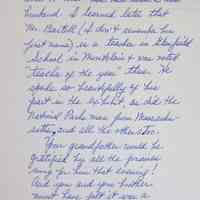 husband. I learned later that
Mr. Bartlett (I don't remember his
first name) is a teacher in Plainfield
School in Montclair & was voted
"teacher of the year" there. He
spoke so beautifully of his
part in the exhibit, as did the
National Parks man from Massachu-
setts, and all the others too.
Your grandfather would be
gratified by all the praises
sung for him that evening!
And you and your brother
must have felt it was a